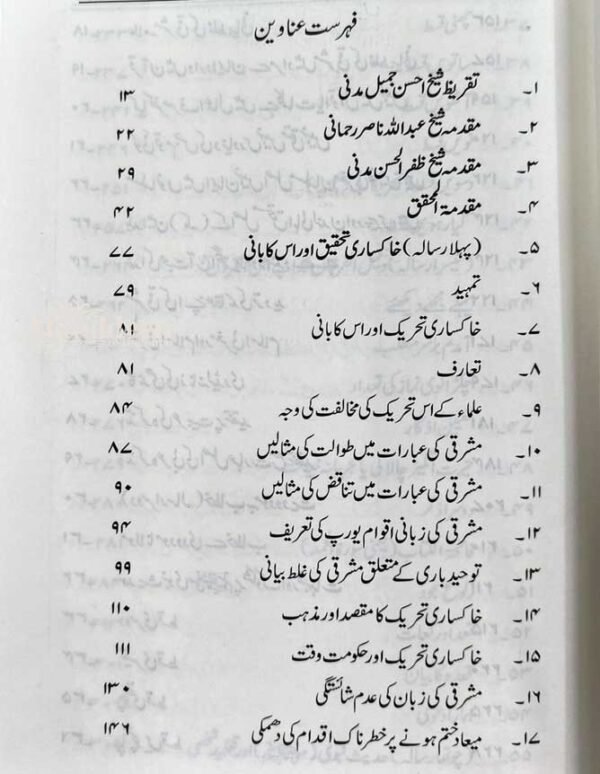 فہرست عناوین
۱۔ تقریظ شیخ احسن جمیل مدنی ۱۳
۲۔ مقدمہ شیخ عبداللہ ناصر رحمانی ۲۲
۳۔ مقدمہ شیخ ظفر الحسن مدنی ۲۹
۴۔ مقدمۃ المحقق ۴۲
۵۔ (پہلا رسالہ) خاکساری تحقیق اور اس کا بانی ۷۷
۶۔ تمہید ۷۹
۷۔ خاکساری تحریک اور اس کا بانی ۸۱
۸۔ تعارف ۸۱
۹۔ علماء کے اس تحریک کی مخالفت کی وجہ ۸۴
۱۰۔ مشرقی کی عبارات میں طوالت کی مثالیں ۸۷
۱۱۔ مشرقی کی عبارات میں تناقض کی مثالیں ۹۰
۱۲۔ مشرقی کی زبانی اقوام یورپ کی تعریف ۹۴
۱۳۔ توحید باری کے متعلق مشرقی کی غلط بیانی ۹۹
۱۴۔ خاکساری تحریک کا مقصد اور مذہب ۱۱۰
۱۵۔ خاکساری تحریک اور حکومت وقت ۱۱۱
۱۶۔ مشرقی کی زبان کی عدم شائستگی ۱۳۰
۱۷۔ میعاد ختم ہونے پر خطرناک اقدام کی دھمکی ۱۴۶